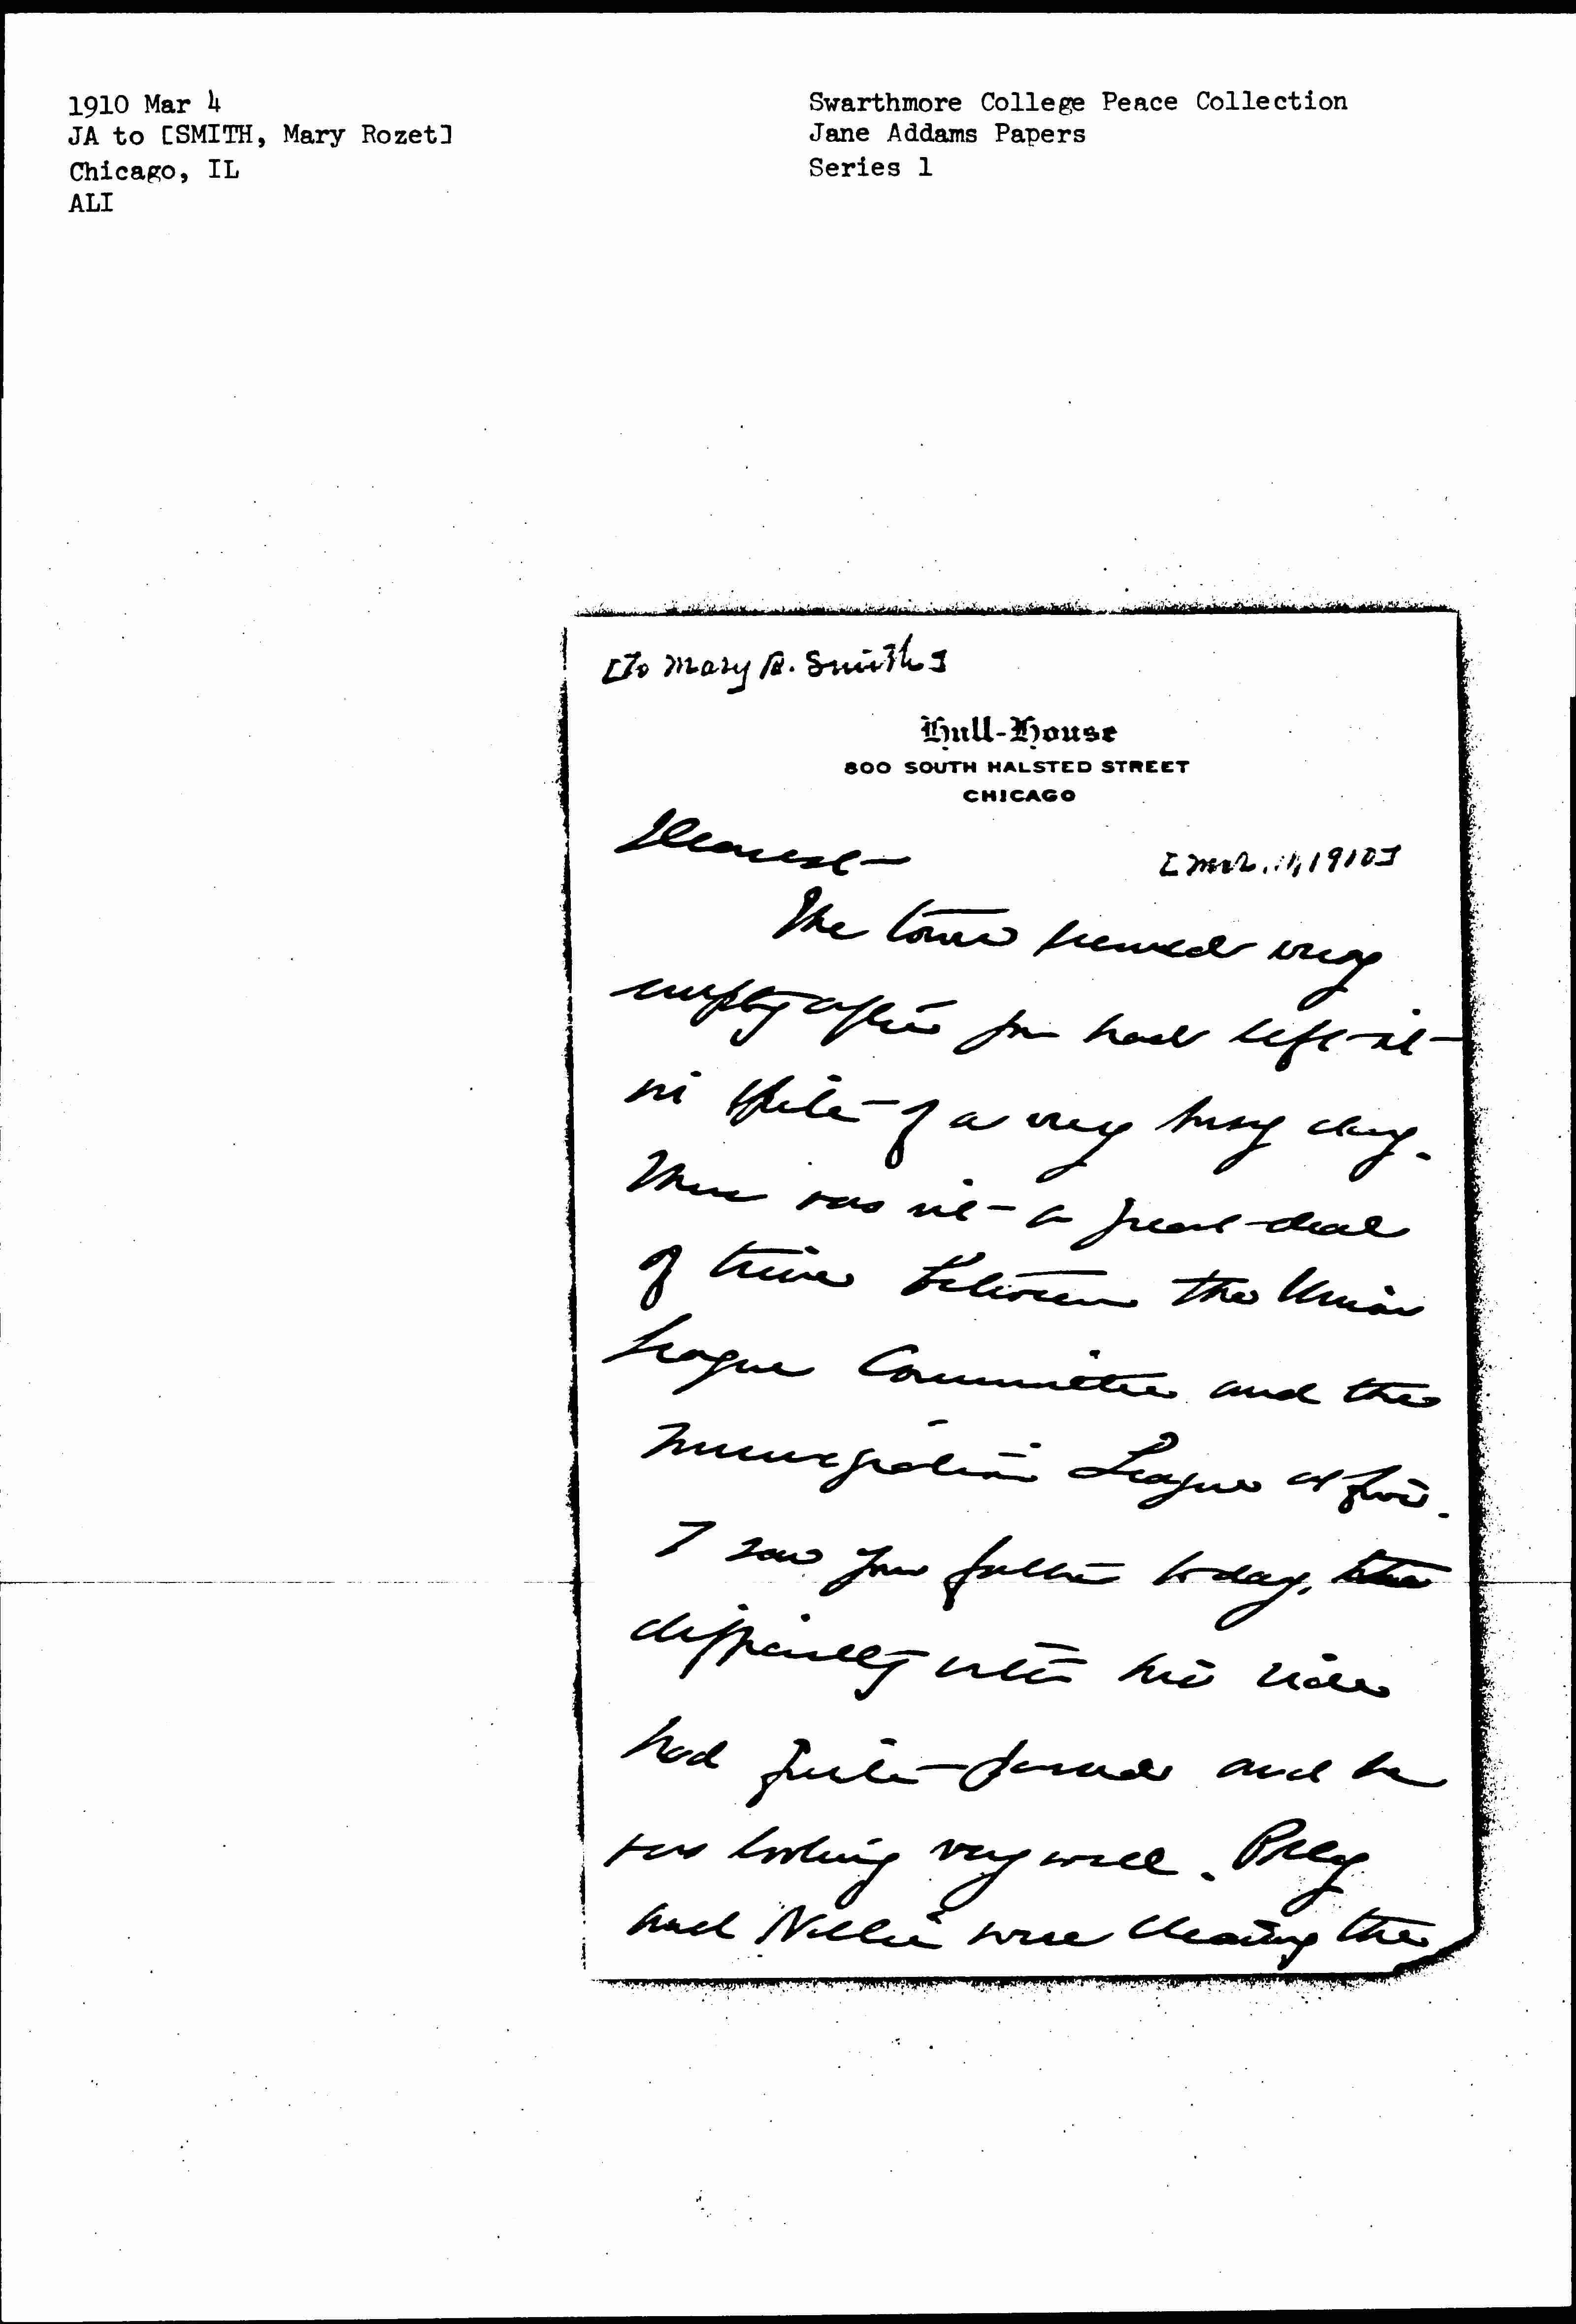 1910 Mar 4
JA to [SMITH, Mary Rozet]
Chicago, IL
ALI
Swarthmore College Peace Collection
Jane Addams Papers
Series 1
[To Mary R. Smith]
Hull-House
800 SOUTH HALSTED STREET
CHICAGO
Dearest –
[Mch. 1910]
The town seemed very
empty after you had left it –
in spite of a very busy day.
There was not a great deal
of time between the Union
League Committee and the
Immigration League at five.
I saw your father today, the
difficulty with his side
had quite passed and he
was looking very well. Polly
and Nellie were cleaning the